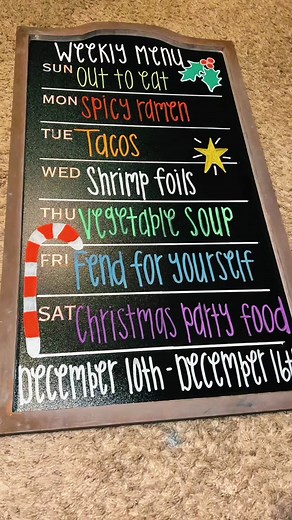 Weekly Menu
SUN Out to eat
MON Spicy ramen
TUE Tacos
WED Shrimp foils
THU Vegetable soup
FRI Fend for yourself
SAT Christmas party food
December 10th - December 16th